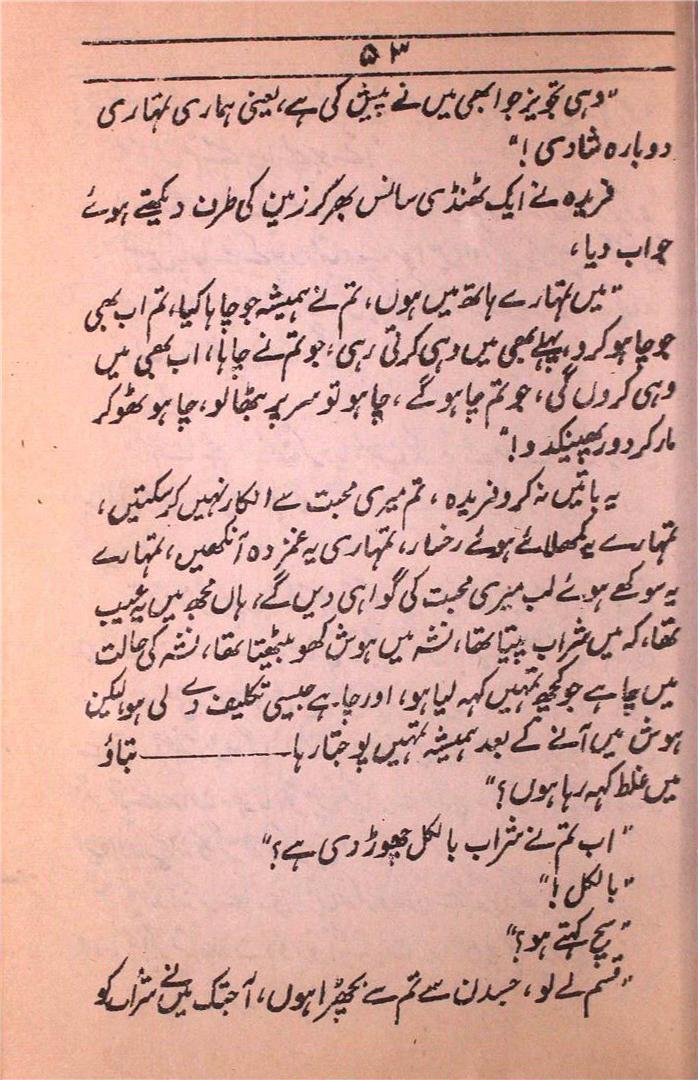 ۵۳
"وہی تجویز جو ابھی میں نے پیش کی ہے، یعنی ہماری تمہاری
دوبارہ شادی!"
فریدہ نے ایک ٹھنڈی سانس بھر کر زمین کی طرف دیکھتے ہوئے
جواب دیا،
"میں تمہارے ہاتھ میں ہوں، تم نے ہمیشہ جو چاہا کیا، تم اب بھی
جو چاہو کرو، پہلے بھی میں وہی کرتی رہی، جو تم نے چاہا، اب بھی میں
وہی کروں گی، جو تم چاہو گے، چاہو تو سر پر بٹھا لو، چاہو ٹھوکر
مار کر دور پھینکدو!"
یہ باتیں نہ کرو فریدہ، تم میری محبت سے انکار نہیں کر سکتیں،
تمہارے یہ کمھلائے ہوئے رخسار، تمہاری یہ غمزدہ آنکھیں، تمہارے
یہ سوکھے ہوئے لب میری محبت کی گواہی دیں گے، ہاں مجھ میں یہ عیب
تھا، کہ میں شراب پیتا تھا، نشہ میں ہوش کھو بیٹھتا تھا، نشہ کی حالت
میں چاہے جو کچھ تمہیں کہہ لیا ہو، اور چاہے جیسی تکلیف دے لی ہو، لیکن
ہوش میں آنے کے بعد ہمیشہ تمہیں پوجتا رہا ــــــــــ بتاؤ
میں غلط کہہ رہا ہوں؟"
"اب تم نے شراب بالکل چھوڑ دی ہے؟"
"بالکل!"
"سچ کہتے ہو؟"
"قسم لے لو، جسدن سے تم سے بچھڑا ہوں، آجتک میں نے شراب کو